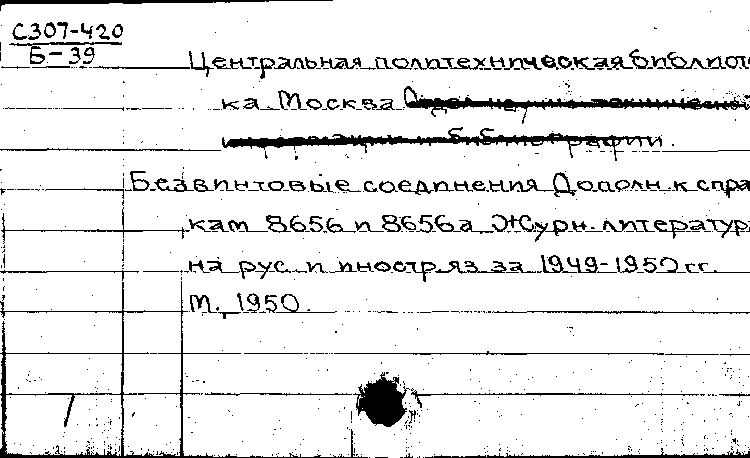 С307-420
Б-39
Центральная политехническая библиоте
ка Москва Отдел научно технической
информации и библиографии.
Безвинтовые соединения Дополн. к спра
кам 8656 и 8656а Журн. литература
на рус. и иностр. яз за 1949-1950 гг.
М., 1950.